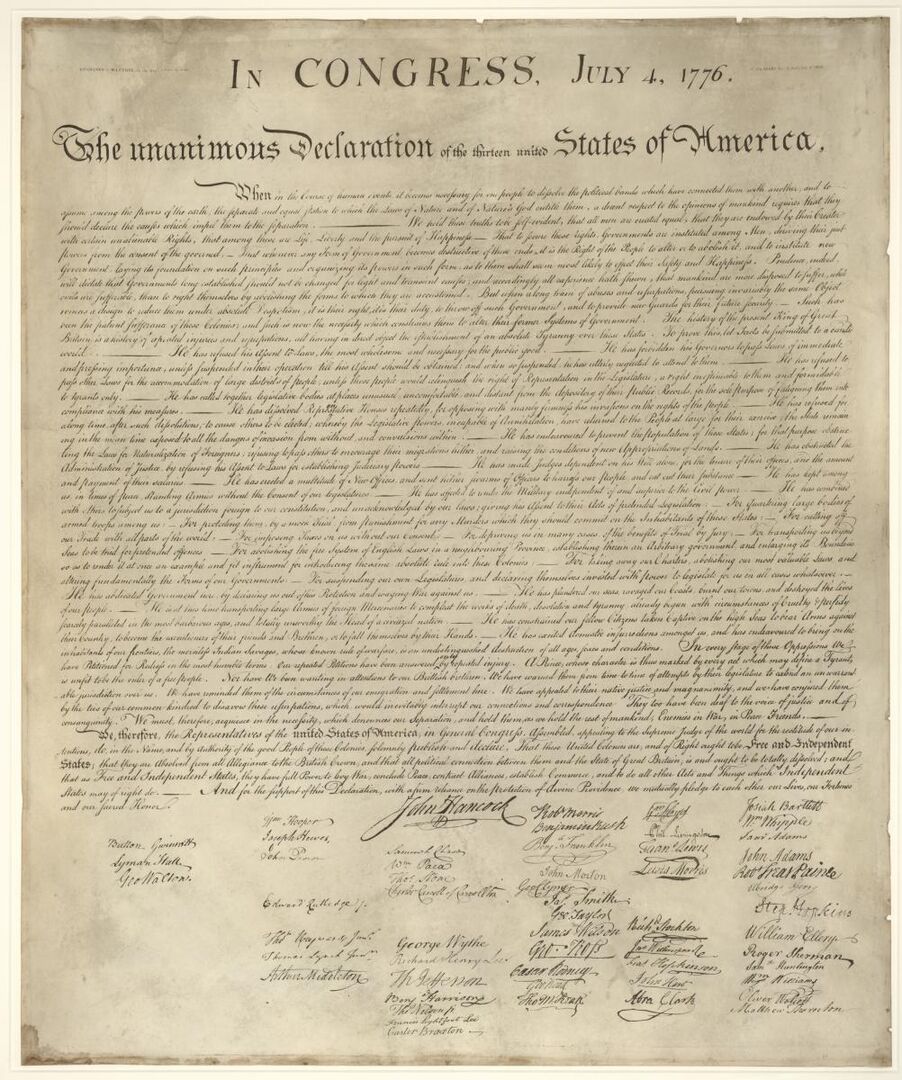 IN CONGRESS, JULY 4, 1776.
The unanimous Declaration of the thirteen united States of America,
When in the Course of human events, it becomes necessary for one people to dissolve the political bands which have connected them with another, and to
assume among the powers of the earth, the separate and equal station to which the Laws of Nature and of Nature's God entitle them, a decent respect to the opinions of mankind requires that they
should declare the causes which impel them to the separation. — We hold these truths to be self-evident, that all men are created equal, that they are endowed by their Creator
with certain unalienable Rights, that among these are Life, Liberty and the pursuit of Happiness. — That to secure these rights, Governments are instituted among Men, deriving their just
powers from the consent of the governed, — That whenever any Form of Government becomes destructive of these ends, it is the Right of the People to alter or to abolish it, and to institute new
Government, laying its foundation on such principles and organizing its powers in such form, as to them shall seem most likely to effect their Safety and Happiness. Prudence, indeed,
will dictate that Governments long established should not be changed for light and transient causes; and accordingly all experience hath shewn, that mankind are more disposed to suffer, while
evils are sufferable, than to right themselves by abolishing the forms to which they are accustomed. But when a long train of abuses and usurpations, pursuing invariably the same Object
evinces a design to reduce them under absolute Despotism, it is their right, it is their duty, to throw off such Government, and to provide new Guards for their future security. — Such has
been the patient sufferance of these Colonies; and such is now the necessity which constrains them to alter their former Systems of Government. The history of the present King of Great
Britain is a history of repeated injuries and usurpations, all having in direct object the establishment of an absolute Tyranny over these States. To prove this, let Facts be submitted to a candid
world. — He has refused his Assent to Laws, the most wholesome and necessary for the public good. — He has forbidden his Governors to pass Laws of immediate
and pressing importance, unless suspended in their operation till his Assent should be obtained; and when so suspended, he has utterly neglected to attend to them. — He has refused to
pass other Laws for the accommodation of large districts of people, unless those people would relinquish the right of Representation in the Legislature, a right inestimable to them and formidable
to tyrants only. — He has called together legislative bodies at places unusual, uncomfortable, and distant from the depository of their public Records, for the sole purpose of fatiguing them into
compliance with his measures. — He has dissolved Representative Houses repeatedly, for opposing with manly firmness his invasions on the rights of the people. — He has refused for
a long time, after such dissolutions, to cause others to be elected; whereby the Legislative powers, incapable of Annihilation, have returned to the People at large for their exercise; the State remain-
ing in the mean time exposed to all the dangers of invasion from without, and convulsions within. — He has endeavoured to prevent the Population of these States; for that purpose obstruc-
ting the Laws for Naturalization of Foreigners; refusing to pass others to encourage their migrations hither, and raising the conditions of new Appropriations of Lands. — He has obstructed the
Administration of Justice, by refusing his Assent to Laws for establishing Judiciary powers. — He has made Judges dependent on his Will alone, for the tenure of their offices, and the amount
and payment of their salaries. — He has erected a multitude of New Offices, and sent hither swarms of Officers to harrass our people, and eat out their substance. — He has kept among
us, in times of peace, Standing Armies without the Consent of our legislatures. — He has affected to render the Military independent of and superior to the Civil power. — He has combined
with others to subject us to a jurisdiction foreign to our constitution, and unacknowledged by our laws; giving his Assent to their Acts of pretended Legislation: — For Quartering large bodies of
armed troops among us: — For protecting them, by a mock Trial, from punishment for any Murders which they should commit on the Inhabitants of these States: — For cutting off
our Trade with all parts of the world: — For imposing Taxes on us without our Consent: — For depriving us in many cases, of the benefits of Trial by Jury: — For transporting us beyond
Seas to be tried for pretended offences — For abolishing the free System of English Laws in a neighbouring Province, establishing therein an Arbitrary government, and enlarging its Boundaries
so as to render it at once an example and fit instrument for introducing the same absolute rule into these Colonies: — For taking away our Charters, abolishing our most valuable Laws, and
altering fundamentally the Forms of our Governments: — For suspending our own Legislatures, and declaring themselves invested with power to legislate for us in all cases whatsoever. —
He has abdicated Government here, by declaring us out of his Protection and waging War against us. — He has plundered our seas, ravaged our Coasts, burnt our towns, and destroyed the Lives
of our people. — He is at this time transporting large Armies of foreign Mercenaries to compleat the works of death, desolation and tyranny, already begun with circumstances of Cruelty & perfidy
scarcely paralleled in the most barbarous ages, and totally unworthy the Head of a civilized nation. — He has constrained our fellow Citizens taken Captive on the high Seas to bear Arms against
their Country, to become the executioners of their friends and Brethren, or to fall themselves by their Hands. — He has excited domestic insurrections amongst us, and has endeavoured to bring on the
inhabitants of our frontiers, the merciless Indian Savages, whose known rule of warfare, is an undistinguished destruction of all ages, sexes and conditions. In every stage of these Oppressions We
have Petitioned for Redress in the most humble terms: Our repeated Petitions have been answered only by repeated injury. A Prince, whose character is thus marked by every act which may define a Tyrant,
is unfit to be the ruler of a free people. Nor have We been wanting in attentions to our Brittish brethren. We have warned them from time to time of attempts by their legislature to extend an unwarrant-
able jurisdiction over us. We have reminded them of the circumstances of our emigration and settlement here. We have appealed to their native justice and magnanimity, and we have conjured them
by the ties of our common kindred to disavow these usurpations, which, would inevitably interrupt our connections and correspondence. They too have been deaf to the voice of justice and of
consanguinity. We must, therefore, acquiesce in the necessity, which denounces our Separation, and hold them, as we hold the rest of mankind, Enemies in War, in Peace Friends. —
We, therefore, the Representatives of the united States of America, in General Congress, Assembled, appealing to the Supreme Judge of the world for the rectitude of our in-
tentions, do, in the Name, and by Authority of the good People of these Colonies, solemnly publish and declare, That these United Colonies are, and of Right ought to be Free and Independent
States; that they are Absolved from all Allegiance to the British Crown, and that all political connection between them and the State of Great Britain, is and ought to be totally dissolved; and
that as Free and Independent States, they have full Power to levy War, conclude Peace, contract Alliances, establish Commerce, and to do all other Acts and Things which Independent
States may of right do. — And for the support of this Declaration, with a firm reliance on the protection of divine Providence, we mutually pledge to each other our Lives, our Fortunes
and our sacred Honor.
John Hancock
Button Gwinnett
Lyman Hall
Geo Walton.
Wm Hooper
Joseph Hewes,
John Penn
Edward Rutledge /.
Thos Heyward Junr.
Thomas Lynch Junr.
Arthur Middleton
Samuel Chase
Wm Paca
Thos Stone
Charles Carroll of Carrollton
George Wythe
Richard Henry Lee
Th Jefferson
Benj Harrison
Thos Nelson jr.
Francis Lightfoot Lee
Carter Braxton
Robt Morris
Benjamin Rush
Benj. Franklin
John Morton
Geo Clymer
Jas. Smith
Geo. Taylor
James Wilson
Geo. Ross
Caesar Rodney
Geo Read
Tho M:Kean
Wm Floyd
Phil. Livingston
Frans. Lewis
Lewis Morris
Richd. Stockton
Jno Witherspoon
Fras. Hopkinson
John Hart
Abra Clark
Josiah Bartlett
Wm Whipple
Saml Adams
John Adams
Robt Treat Paine
Elbridge Gerry
Step. Hopkins
William Ellery
Roger Sherman
Saml Huntington
Wm Williams
Oliver Wolcott
Matthew Thornton